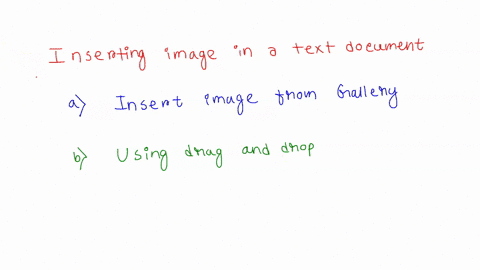 Inserting image in a text document
a) Insert image from Gallery
b) Using drag and drop